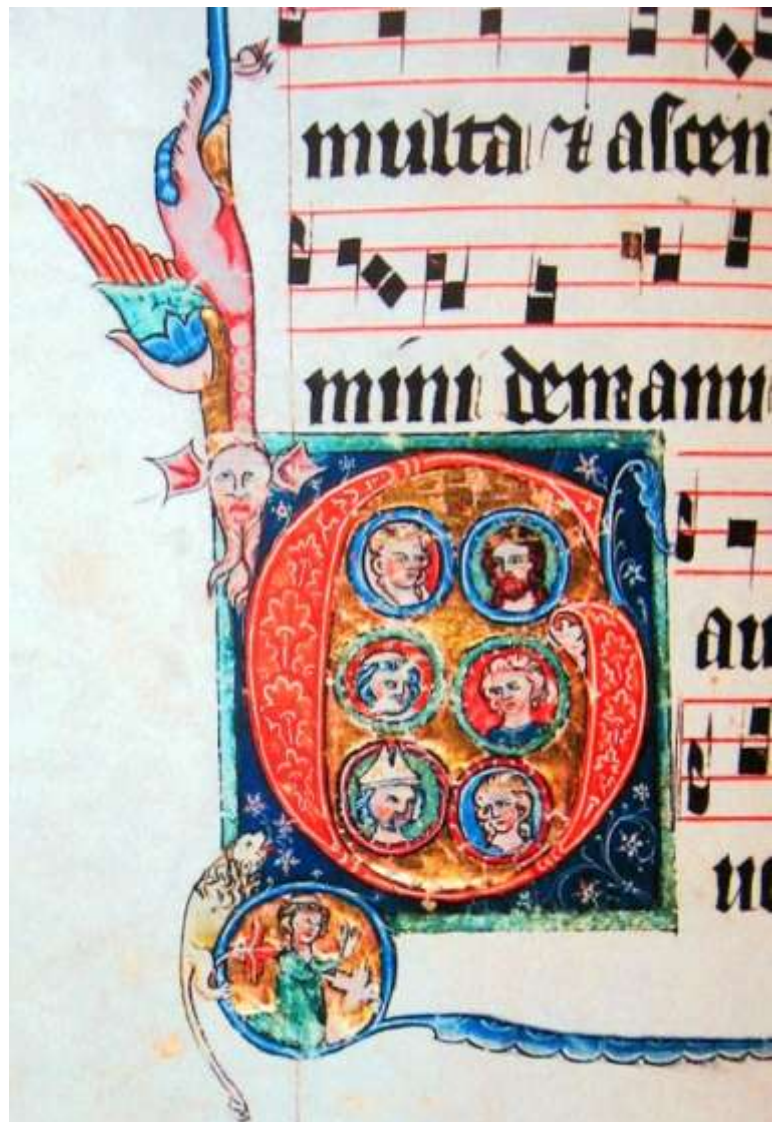 multa ⁊ aſcen
mini demanu
Gau